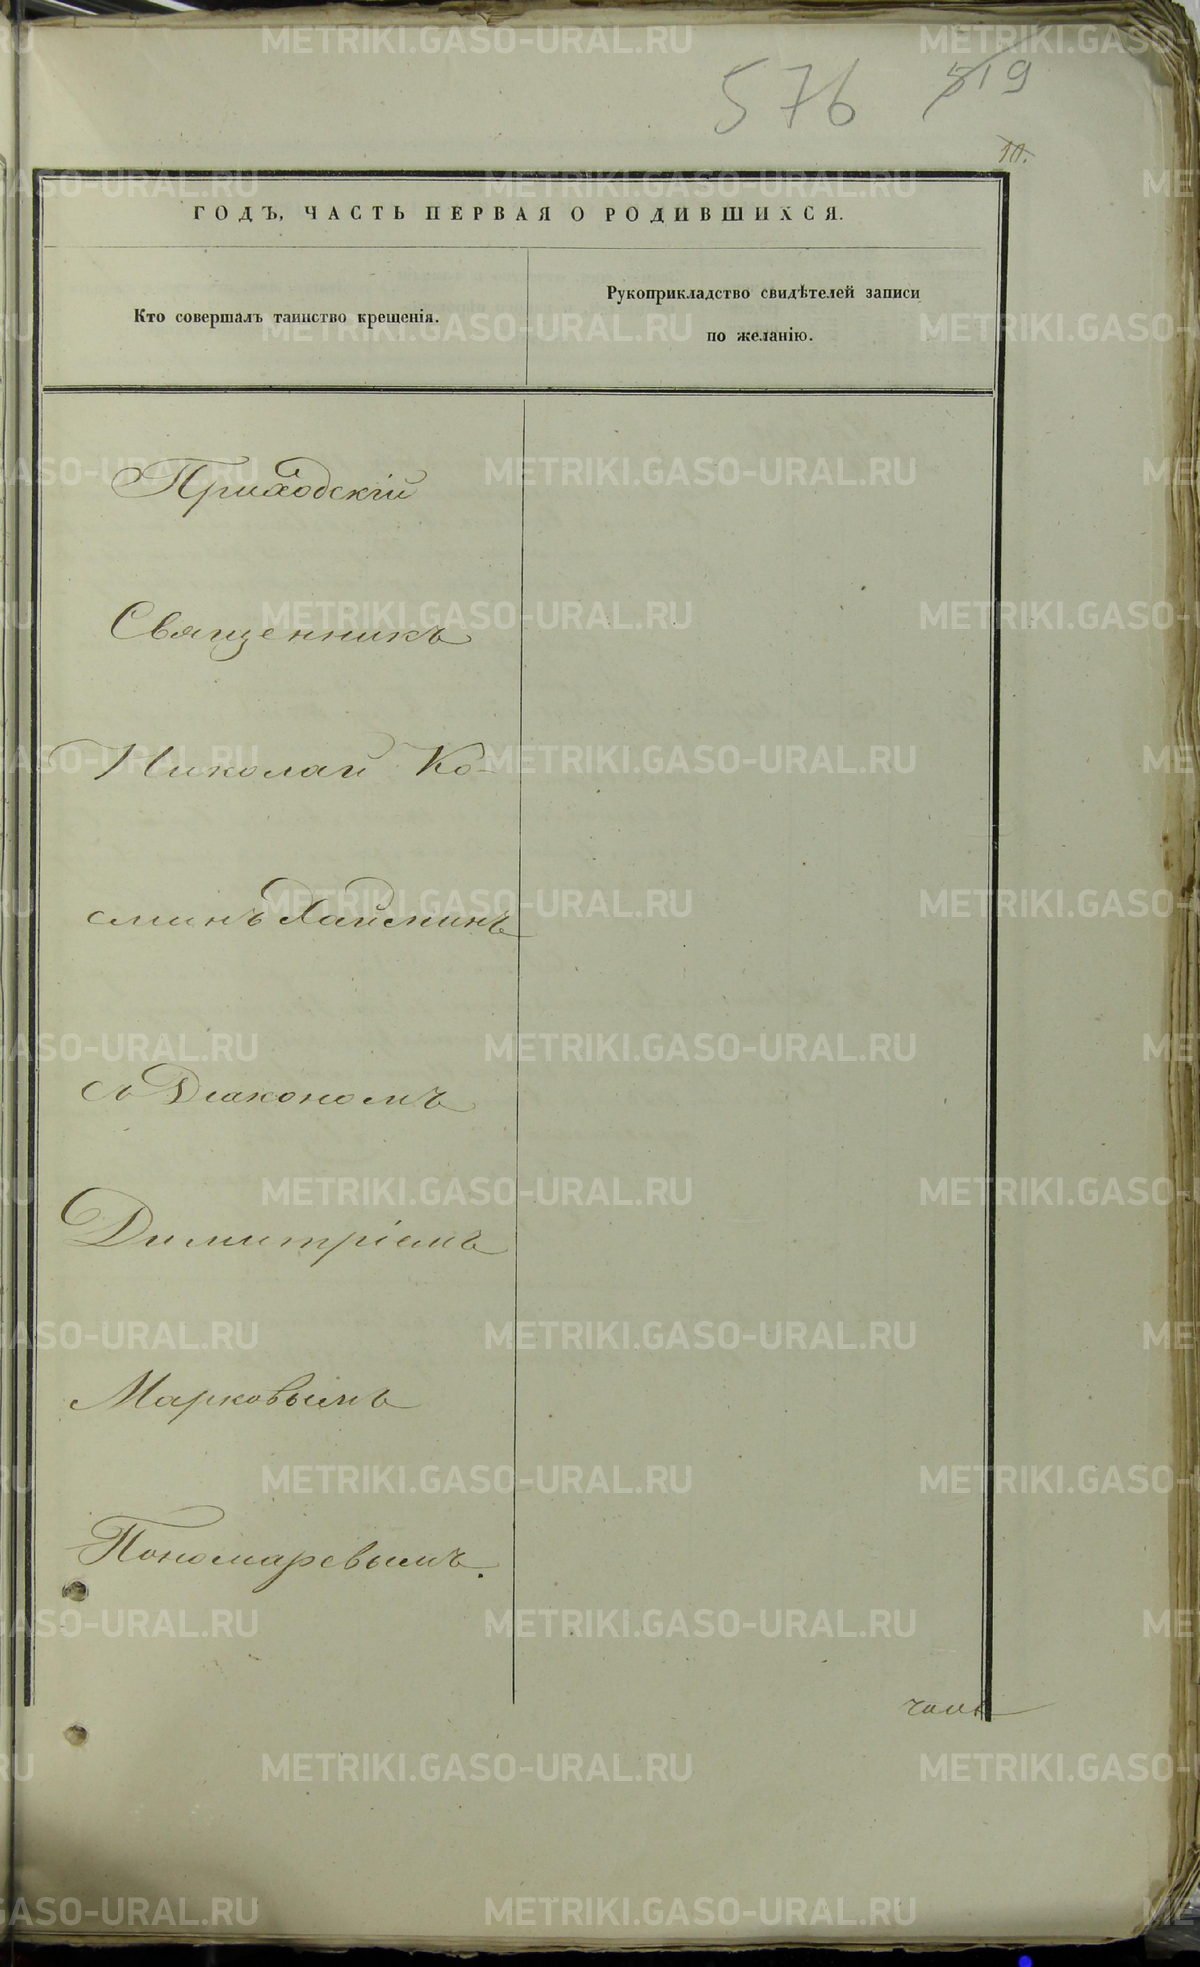 576 519
10.
ГОДЪ, ЧАСТЬ ПЕРВАЯ О РОДИВШИХСЯ.
Кто совершалъ таинство крещенія.
Рукоприкладство свидѣтелей записи
по желанію.
Приходскій
Священникъ
Николай Ко-
сминъ Хаймин
съ Діакономъ
Димитріемъ
Марковымъ
Пономаревымъ.
METRIKI.GASO-URAL.RU